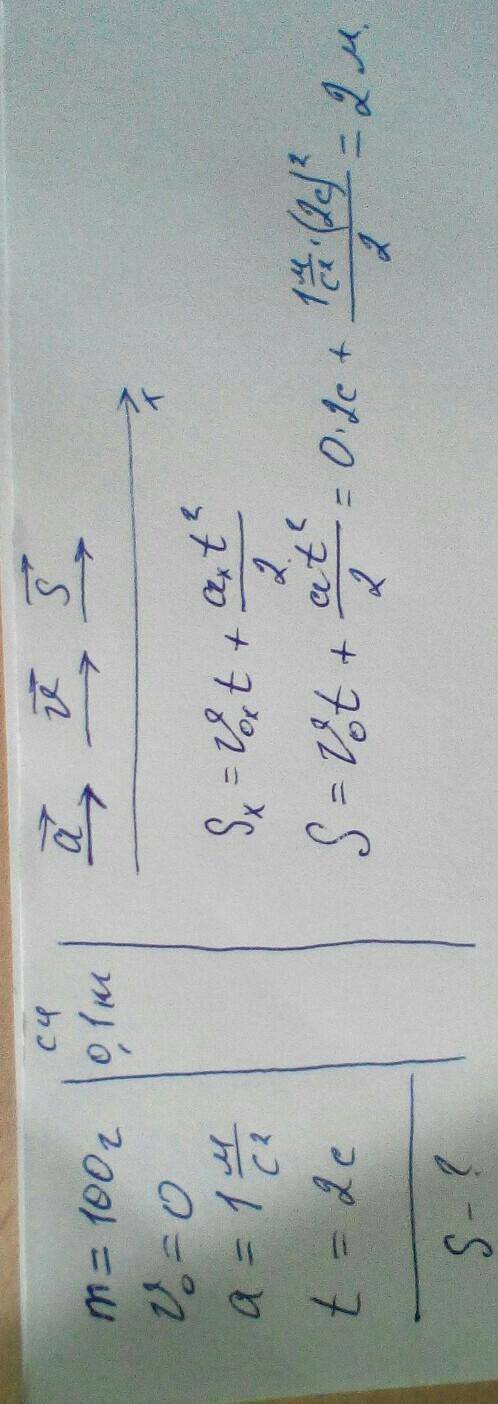 m = 100г
СИ
0,1 кг
v₀ = 0
a = 1 м/с²
t = 2с
S - ?
a⃗ v⃗ S⃗
x
Sₓ = v₀ₓt + aₓt²/2
S = v₀t + at²/2 = 0·2с + 1 м/с²·(2с)²/2 = 2 м.